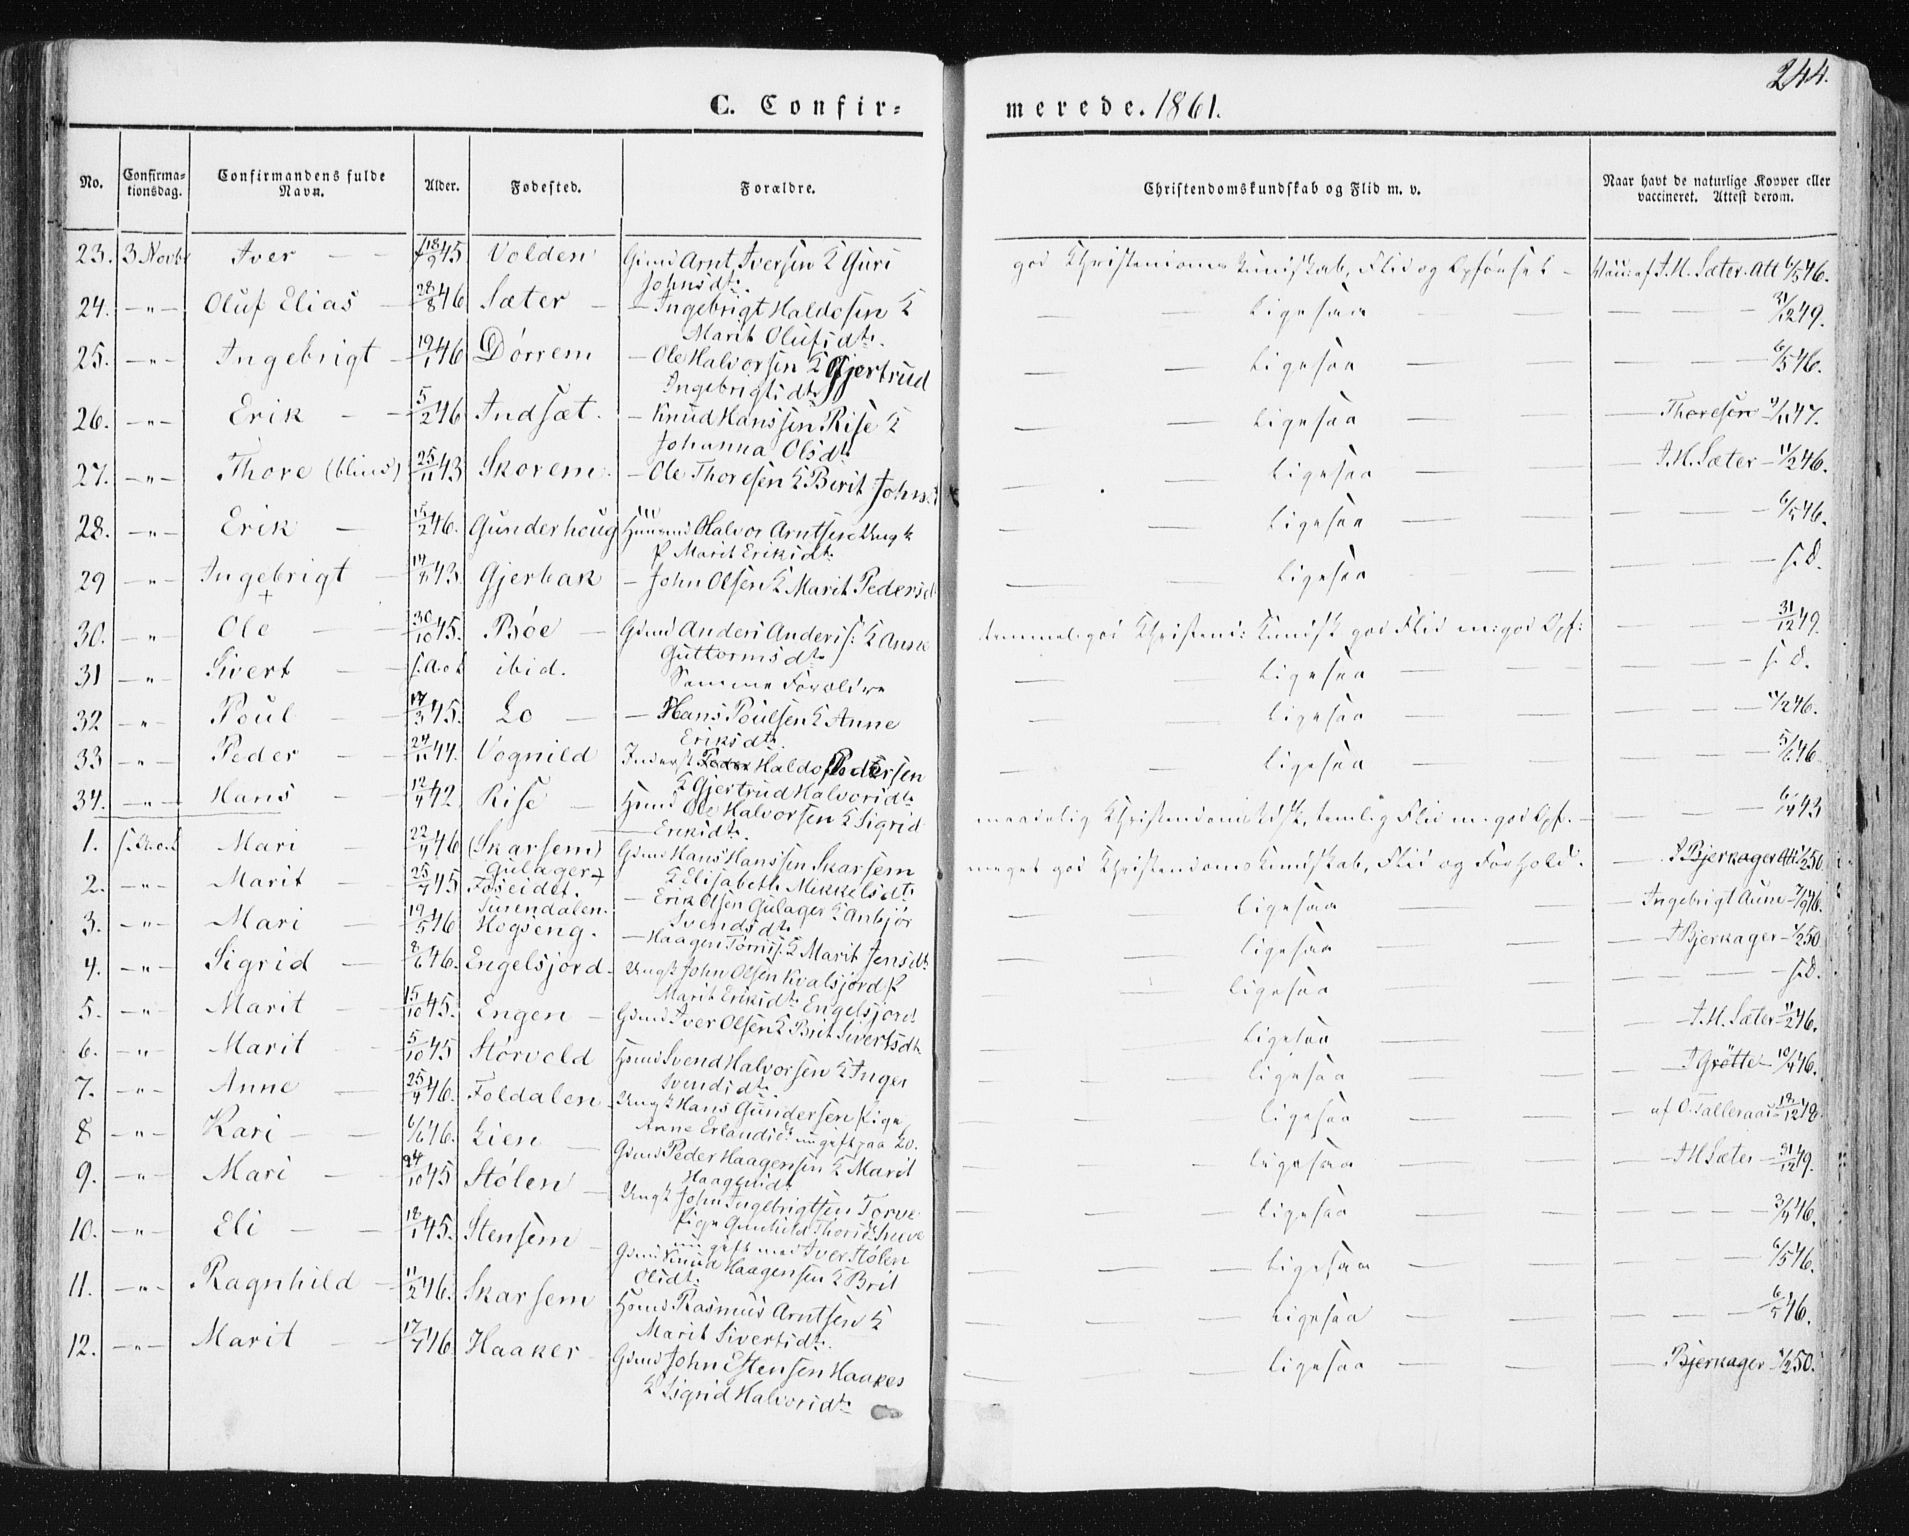 244.
C. Confir= merede. 1861.
No. Confirma-tionsdag. Confirmandens fulde Navn. Alder. Fødested. Forældre. Christendomskundskab og Flid m. v. Naar havt de naturlige Kopper eller vaccineret. Attest derom.
23. 3 Novbr Iver 18/9 45 Volden Gmd Arnt Iversen & Guri god Christendoms Kundskab, Flid og Opførsel Vacc: af I.M. Sæter Att 6/5 46.
Johnsdt.
24. -"- Oluf Elias 28/8 46 Sæter - Ingebrigt Haldosen & Ligesaa 31/12 49.
Marit Olufsdt.
25. -"- Ingebrigt 19/1 46 Dørrem - Ole Halvorsen & Gjertrud Ligesaa 6/5 46.
Ingebrigtsdt
26. -"- Erik 5/2 46 Indsæt. - Knud Hanssen Rise & Ligesaa Thoresen 47.
Johanna Olsdt
27. -"- Thore (blind) 25/11 43 Skorem - Ole Thoresen & Berit Johnsd Ligesaa I.M. Sæter 11/2 46.
28. -"- Erik 15/2 46. Gunderhoug Halvor Arntsen Ungk Ligesaa 6/5 46.
P Marit Eriksdt.
29 -"- Ingebrigt 43. Gjerbak - John Olsen & Marit Pedersd Ligesaa s.D.
30. -"- Ole 30/10 45. Bøe Gmd Anders Anders: & Anne temmel. god Christend: Kundsk god Flid m: god Opf: 31/12 49.
Guttormsdt
31 -"- Sivert s.Dat ibid. Samme Forældre Ligesaa s D.
32 -"- Poul 17/3 45. Lo - Hans Poulsen & Anne Ligesaa 11/2 46.
Eriksdt.
33 -"- Peder 24/11 44. Vognild Inderst Haldo Pedersen Ligesaa 46
& Gjertrud Halvorsdt.
34. -"- Hans 12/4 42 Rise Hmd Ole Halvorsen & Sigrid maadelig Christendoms Kdsk, temlig Flid m. god Opf. 43
Eriksdt.
1. s.Dat Mari 22/4 46 (Skarsem) Gulager Gmd Hans Hanssen Skarsem meget god Christendoms Kundskab, Flid og Forhold. I Bjerkager Att 1/2 50
& Elisabeth Mikkelsdt
2. -"- Marit 25/7 45 Foseidet. - Erik Olsen Gulager & Anbjør Ligesaa Ingebrigt Aune 46.
Svendsdt
3. -"- Mari 19/5 46 Surendalen. Høgseng. - Haagen Tørris: & Marit Jensdt Ligesaa I Bjerkager 1/2 50
4. -"- Sigrid 8/6 46. Engelsjord Ungk John Olsen Kvalsjord P Ligesaa s.D.
Marit Eriksdt. Engelsjord
5. -"- Marit 15/10 45. Engen Gmd Iver Olsen & Brit Sivertsdt Ligesaa I.M. Sæter 11/2 46.
6. -"- Marit 5/10 45 Størvold Hmd Svend Halvorsen & Inger Ligesaa I Grötte 10/4 46.
Svendsdt.
7. -"- Anne 25/4 46. Foldalen Ungk Hans Gundersen Pige Ligesaa af O. Talleraas 18/12 48.
Anne Erlandsdt nu gift paa Lo.
8 -"- Kari 6/6 46. Lien Gmd Peder Haagensen & Marit Ligesaa I M Sæter 31/12 49.
Haagensdt
9. -"- Mari 24/10 45 Stølen Ungk John Ingebrigtsen Torve Ligesaa 46.
Pige Gunhild Thorsdt
nu gift med Iver Stølen
10. -"- Eli 18/1 45. Stensem Gmd Knud Haagensen & Brit Ligesaa 6/5 46.
Olsdt.
11. -"- Ragnhild 11/2 46. Skarsem Hmd Rasmus Arntsen & Ligesaa 6/5 46.
Marit Sivertsdt.
12. -"- Marit 17/7 46. Haaker Gmd John Estensen Haaker Ligesaa Bjerkager 1/2 50.
& Sigrid Halvorsdt.